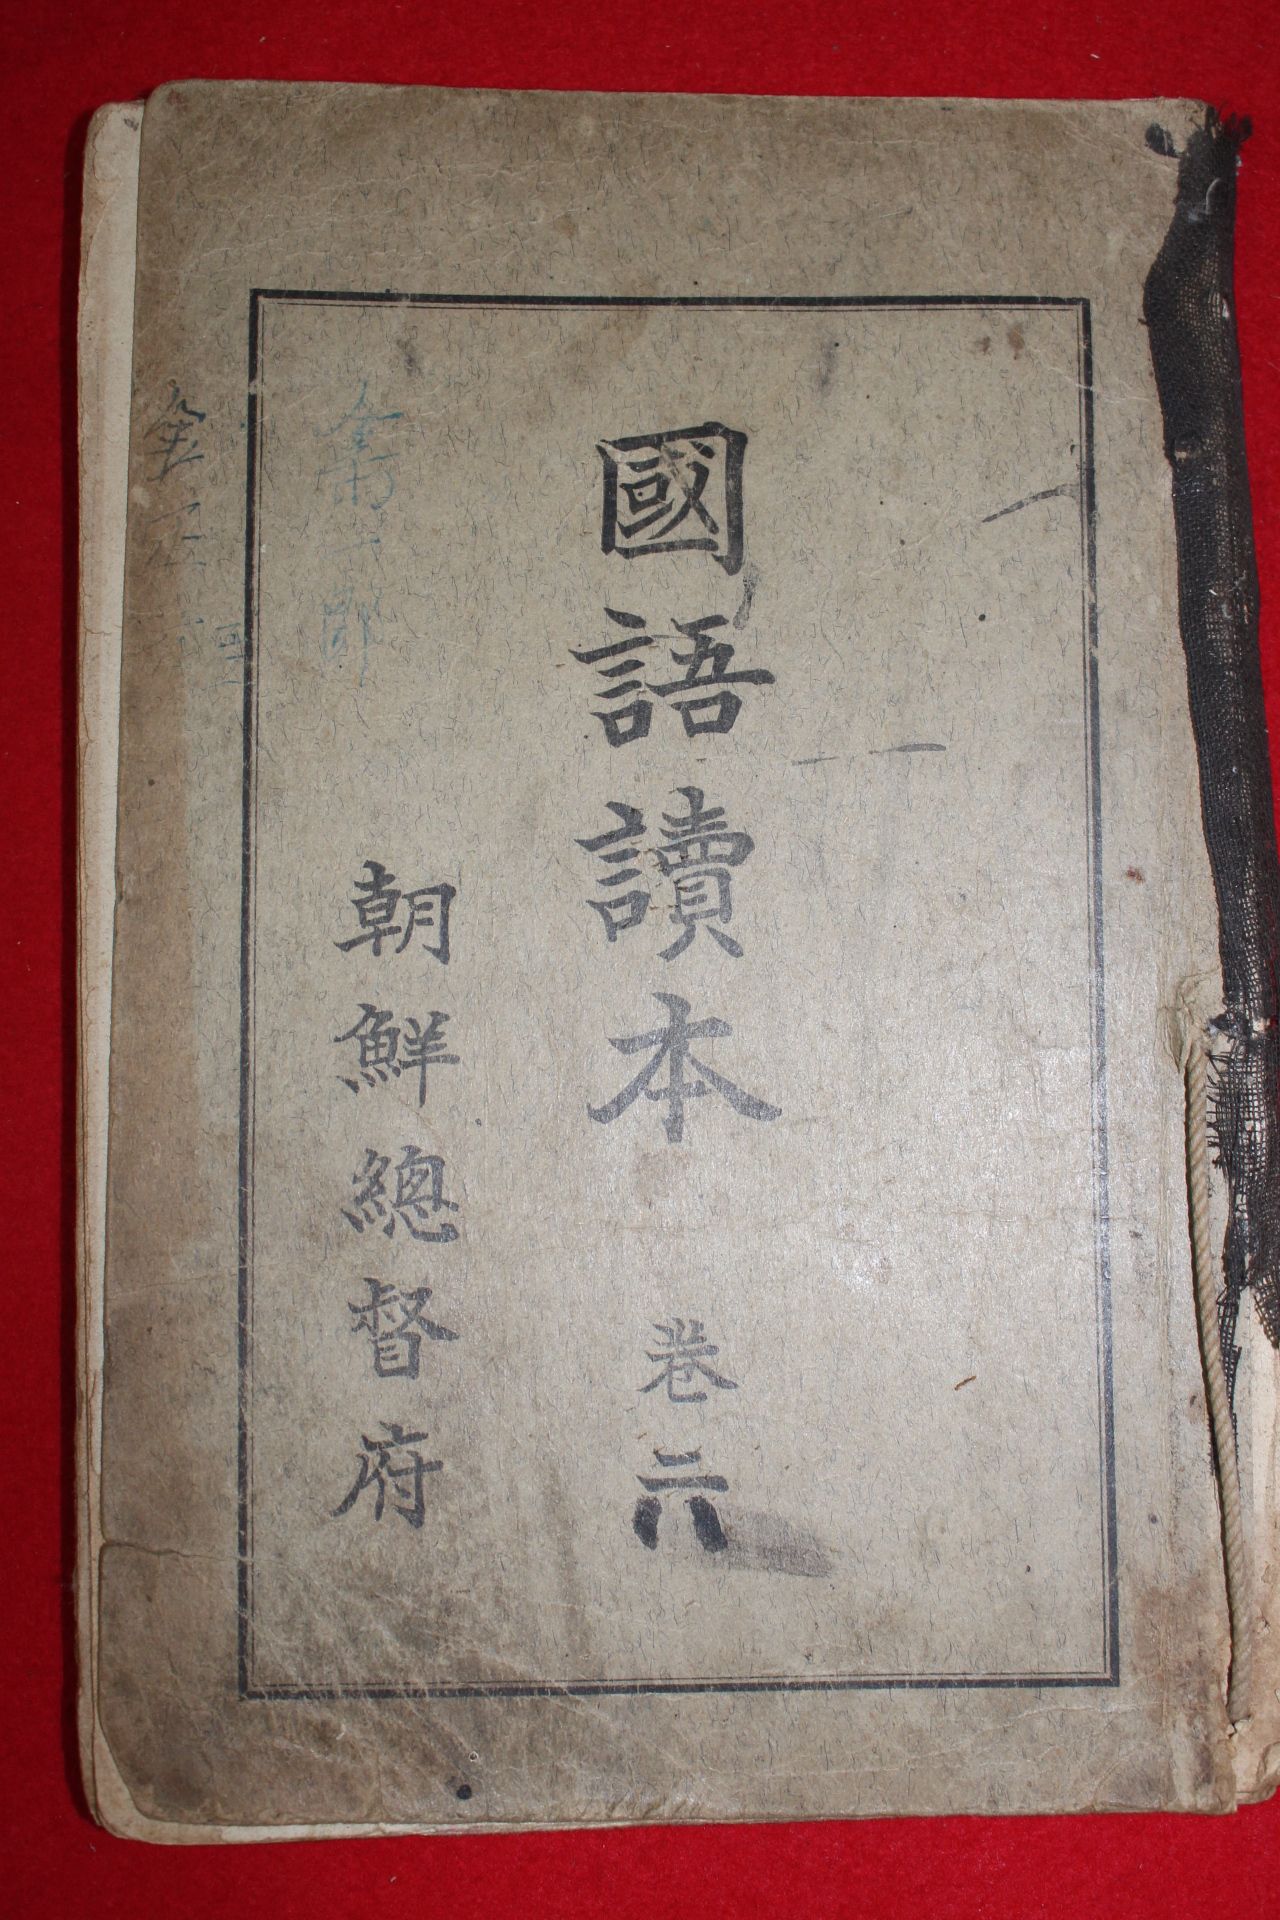 國語讀本 卷六
朝鮮總督府